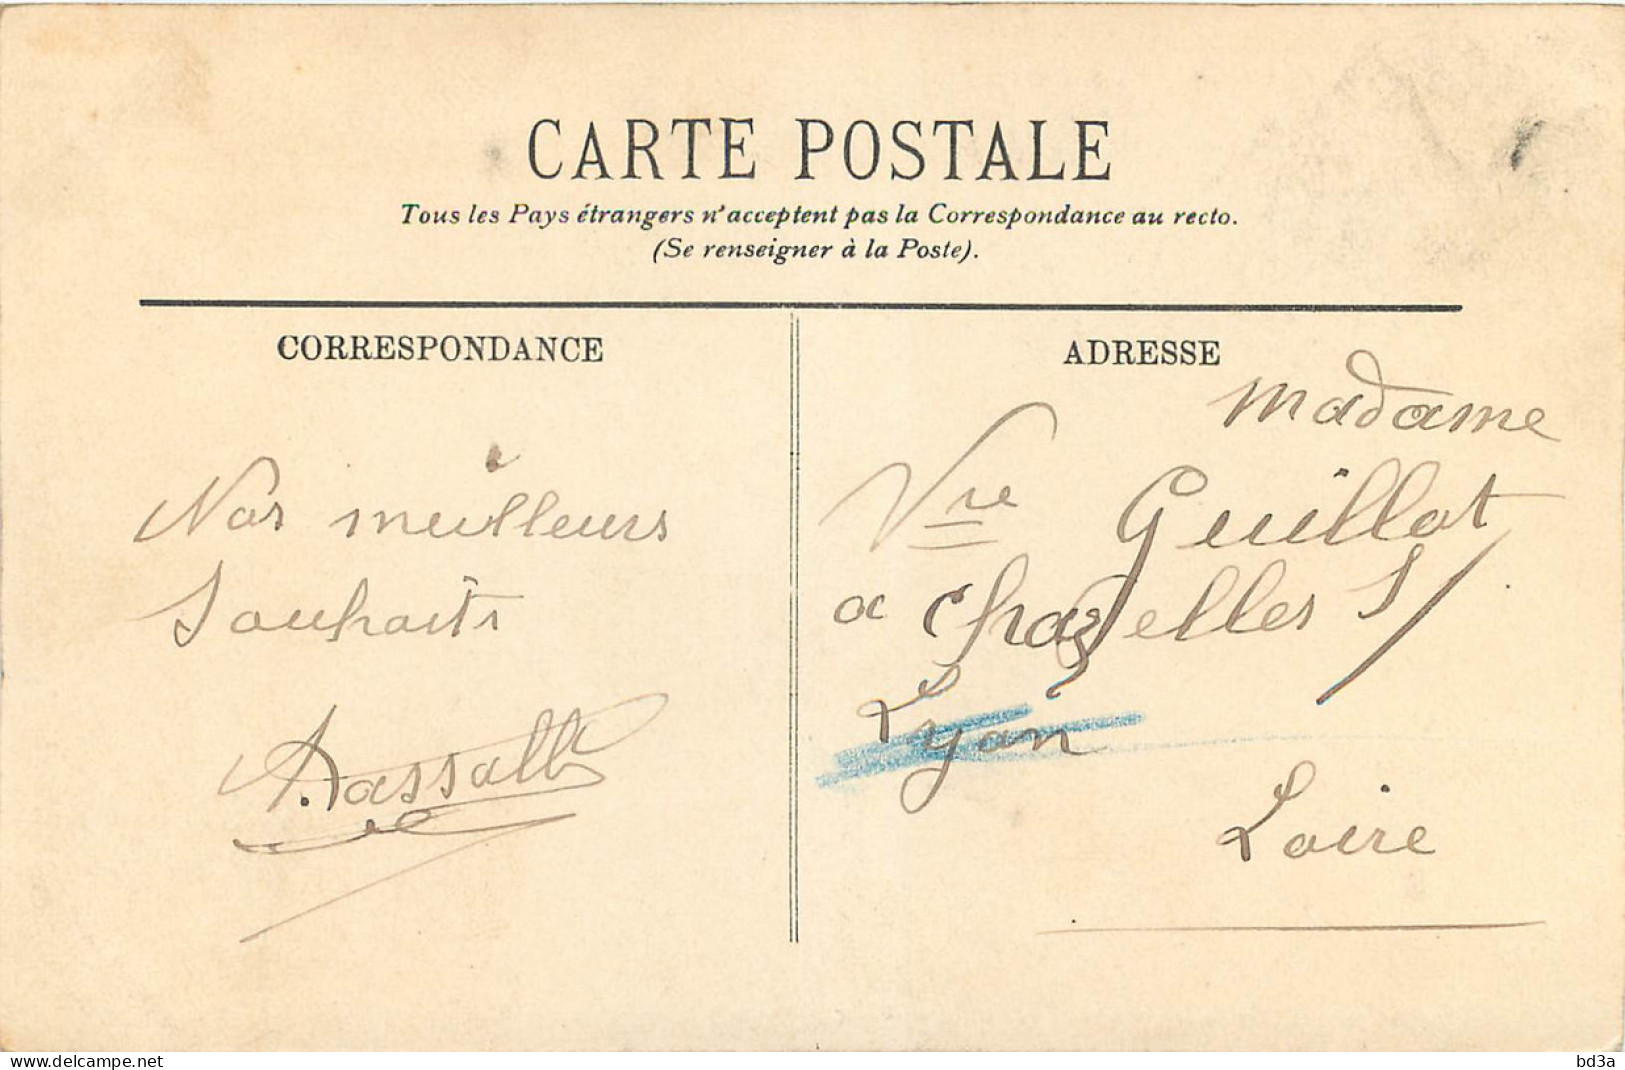 CARTE POSTALE
Tous les Pays étrangers n'acceptent pas la Correspondance au recto.
(Se renseigner à la Poste).
CORRESPONDANCE
Nos meilleurs
Souhaits
ADRESSE
Madame
Vve Guillot
a Chazelles s/
Lyon
Loire
delcampe.net
bd3a